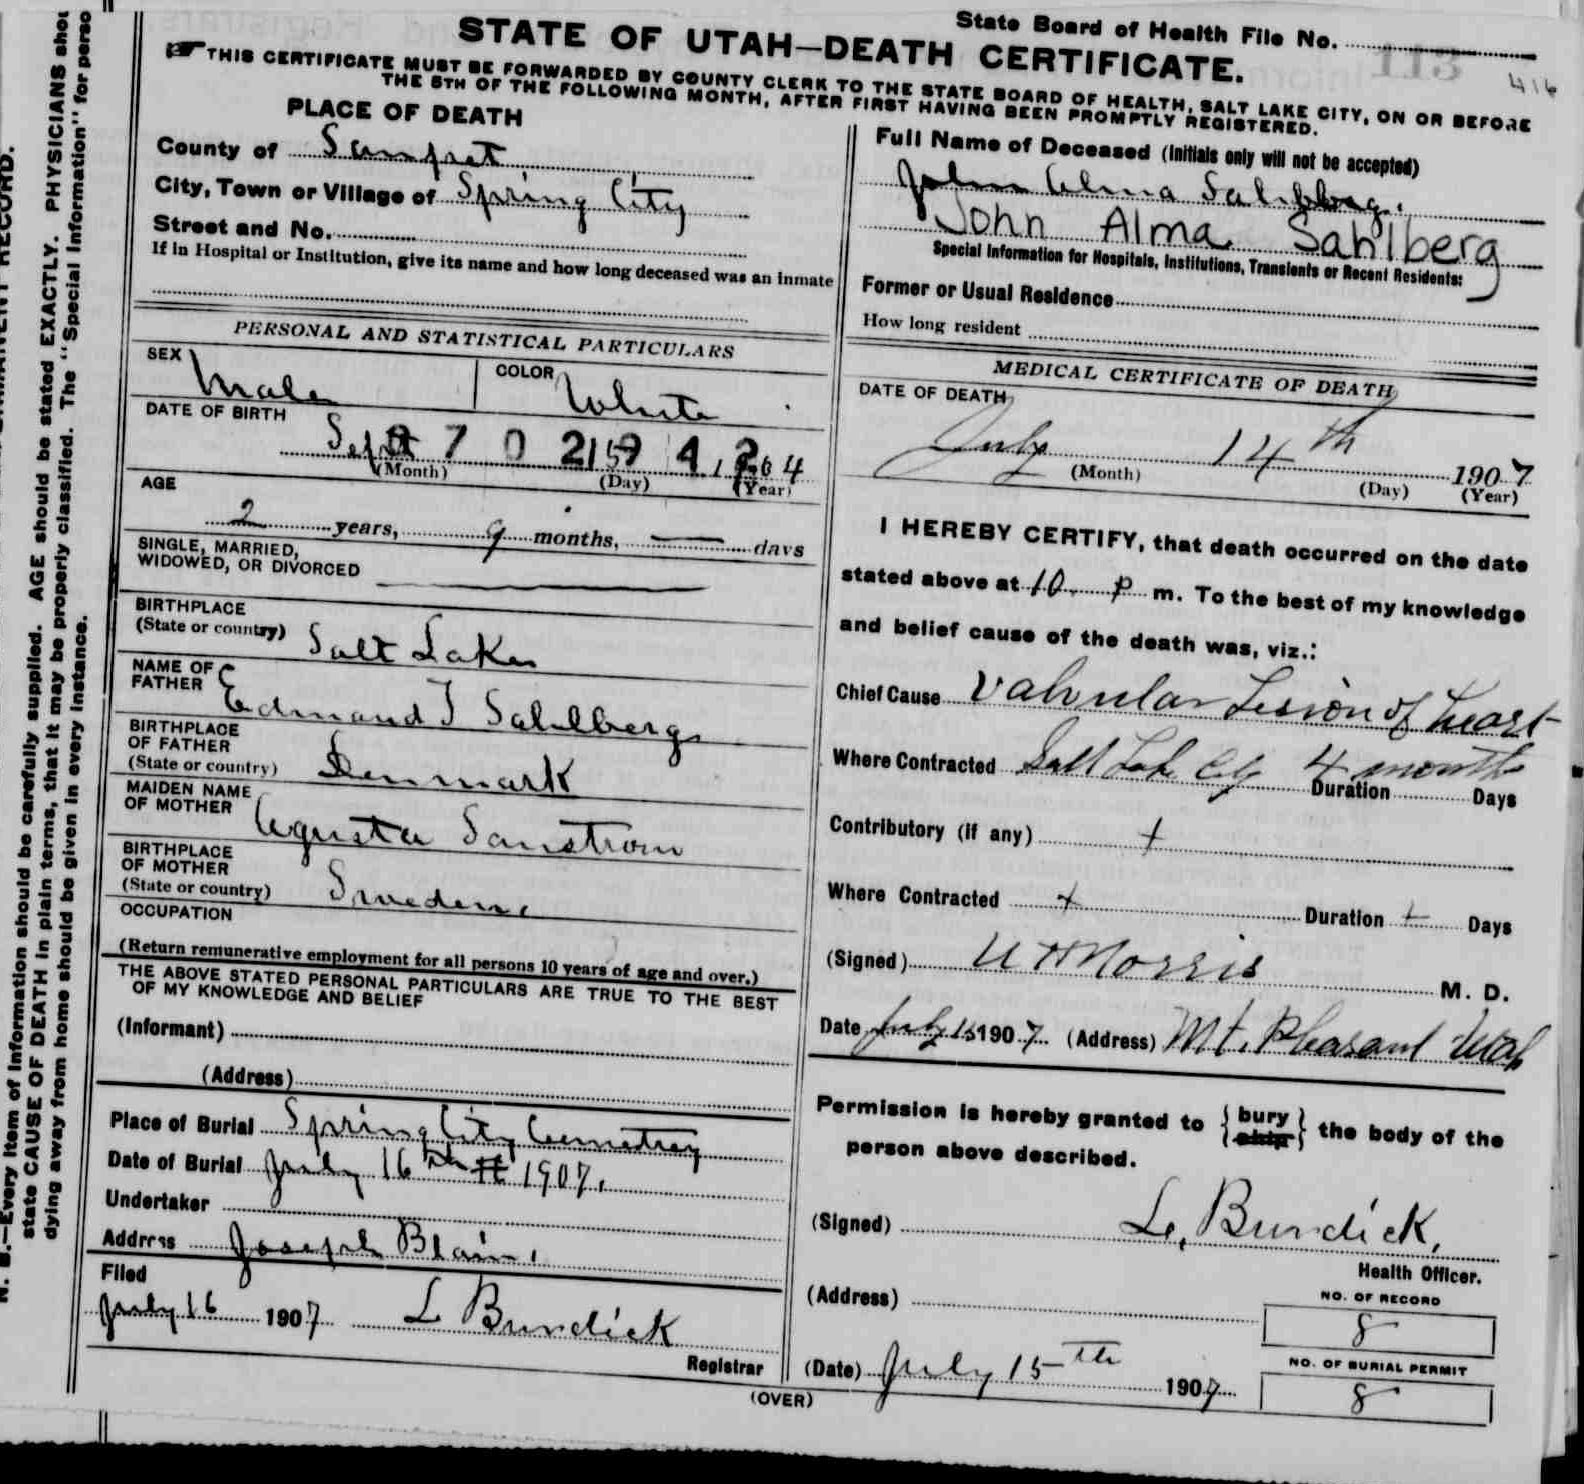 State Board of Health File No.
113
416
STATE OF UTAH—DEATH CERTIFICATE.
THIS CERTIFICATE MUST BE FORWARDED BY COUNTY CLERK TO THE STATE BOARD OF HEALTH, SALT LAKE CITY, ON OR BEFORE
THE 5TH OF THE FOLLOWING MONTH, AFTER FIRST HAVING BEEN PROMPTLY REGISTERED.
PLACE OF DEATH
County of Sanpet
City, Town or Village of Spring City
Street and No.
If in Hospital or Institution, give its name and how long deceased was an inmate
Full Name of Deceased (Initials only will not be accepted)
John Alma Sahlberg.
John Alma Sahlberg
Special Information for Hospitals, Institutions, Transients or Recent Residents:
Former or Usual Residence
How long resident
PERSONAL AND STATISTICAL PARTICULARS
SEX Male
COLOR White
DATE OF BIRTH
Sept 15 1904
(Month) (Day) (Year)
AGE
2 years, 9 months, — days
SINGLE, MARRIED,
WIDOWED, OR DIVORCED
BIRTHPLACE
(State or country) Salt Lake
NAME OF
FATHER Edmand J Sahlberg
BIRTHPLACE
OF FATHER
(State or country) Denmark
MAIDEN NAME
OF MOTHER Agusta Sanstrom
BIRTHPLACE
OF MOTHER
(State or country) Sweden.
OCCUPATION
(Return remunerative employment for all persons 10 years of age and over.)
THE ABOVE STATED PERSONAL PARTICULARS ARE TRUE TO THE BEST
OF MY KNOWLEDGE AND BELIEF
(Informant)
(Address)
Place of Burial Spring City Cemetrey
Date of Burial July 16th 1907.
Undertaker
Address Joseph Blain.
Filed
July 16 1907 L Burdick
Registrar
MEDICAL CERTIFICATE OF DEATH
DATE OF DEATH
July 14th 1907
(Month) (Day) (Year)
I HEREBY CERTIFY, that death occurred on the date
stated above at 10 P m. To the best of my knowledge
and belief cause of the death was, viz.:
Chief Cause Valvular Lesion of heart
Where Contracted Salt Lake City 4 months
Duration Days
Contributory (if any) +
Where Contracted + Duration + Days
(Signed) W H Morris M. D.
Date July 15 1907 (Address) Mt. Pleasant Utah
Permission is hereby granted to {bury ship} the body of the
person above described.
(Signed) L. Burdick,
Health Officer.
(Address)
NO. OF RECORD
8
NO. OF BURIAL PERMIT
8
(Date) July 15th 1907
(OVER)
N. B.—Every item of information should be carefully supplied. AGE should be stated EXACTLY. PHYSICIANS
state CAUSE OF DEATH in plain terms, that it may be properly classified. The "Special Information" for
dying away from home should be given in every instance.